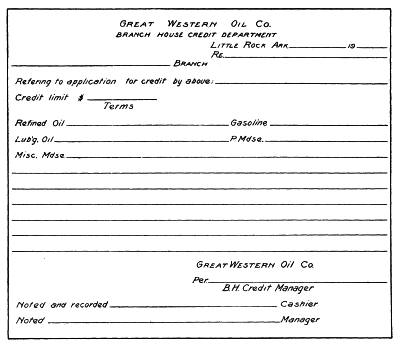 GREAT WESTERN OIL CO.
BRANCH HOUSE CREDIT DEPARTMENT
LITTLE ROCK ARK. 19
RE.
BRANCH
Refering to application for credit by above:
Credit limit $
Terms
Refined Oil Gasoline
Lub'g. Oil P. Mdse.
Misc. Mdse
GREAT WESTERN OIL CO.
Per
B.H. Credit Manager
Noted and recorded Cashier
Noted Manager